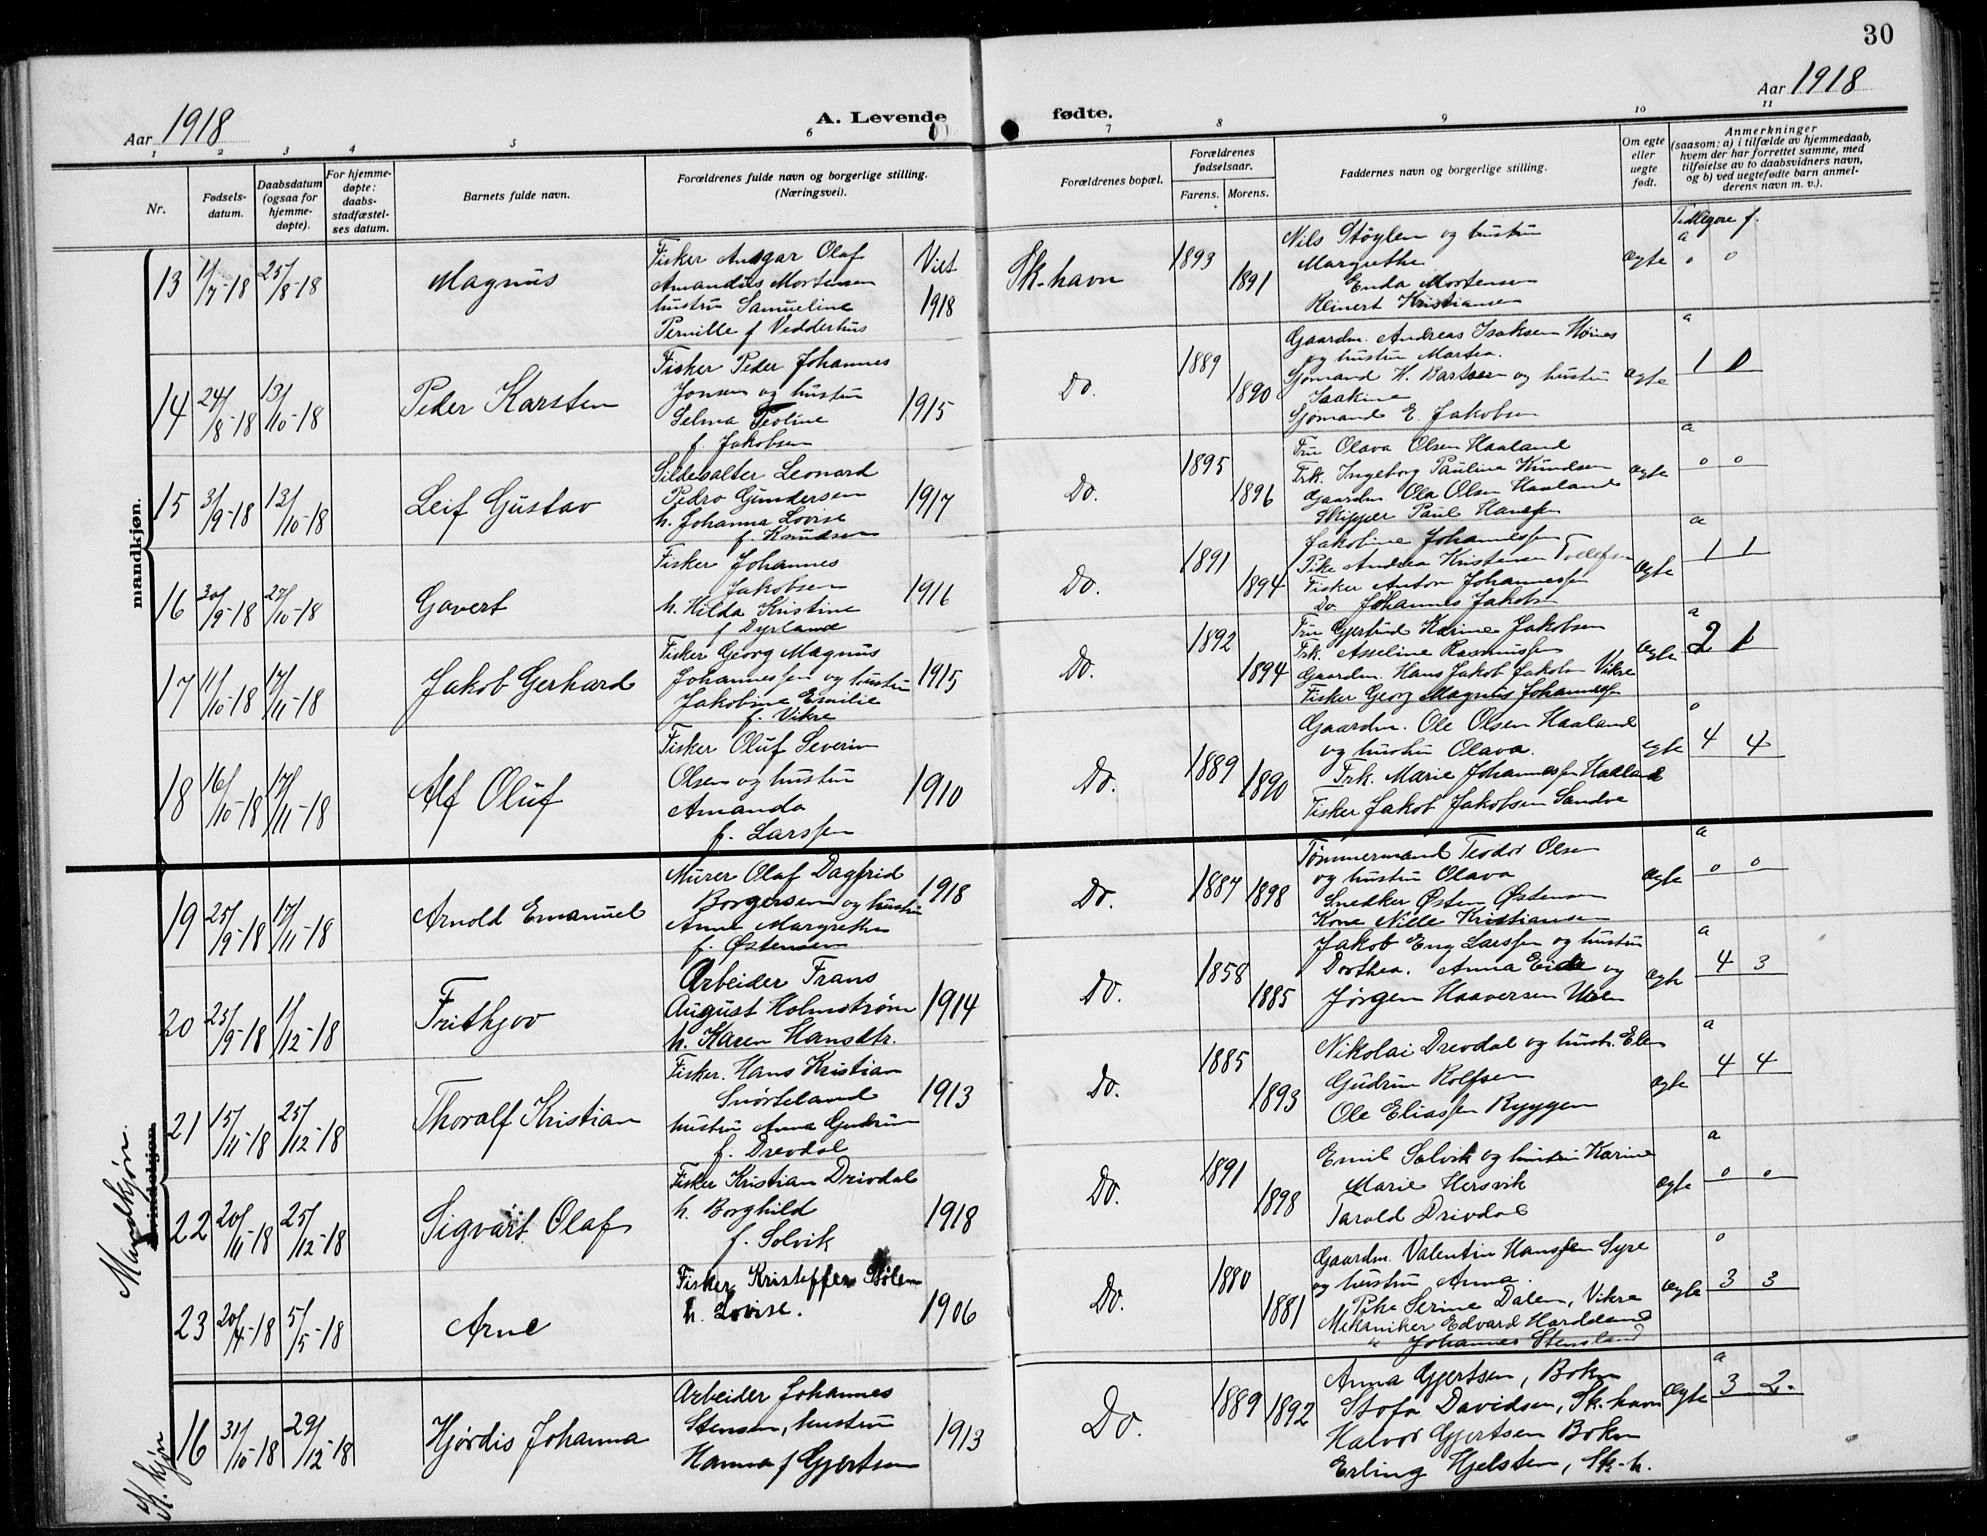 30
Aar 1918
A. Levende
fødte.
Aar 1918
1 2 3 4 5 6 7 8 9 10 11
Nr.
Fødsels-
datum.
Daabsdatum
(ogsaa for
hjemme-
døpte).
For hjemme-
døpte:
daabs-
stadfæstel-
ses datum.
Barnets fulde navn.
Forældrenes fulde navn og borgerlige stilling.
(Næringsvei).
Forældrenes bopæl.
Forældrenes
fødselsaar.
Farens. Morens.
Faddernes navn og borgerlige stilling.
Om egte
eller
uegte
født.
Anmerkninger
(saasom: a) i tilfælde av hjemmedaab,
hvem der har forrettet samme, med
tilføielse av to daabsvidners navn,
og b) ved uegtefødte barn anmel-
derens navn m. v.).
Tidligere f.
mandkjøn.
13 11/7-18 25/8-18 Magnus
Fisker Ansgar Olaf
Amandus Mortensen
hustru Samueline
Pernille f Vedderhus
Viet
1918
Sk.havn
1893 1891
Nils Støylen og hustru
Margrethe
Enda Mortensen
Reinert Kristiansen
ægte
a
0 0
14 24/8-18 13/10-18 Peder Karsten
Fisker Peder Johannes
Jonsen og hustru
Selma Teoline
f. Jakobsen
1915
Do.
1889 1890
Gaardm. Andreas Isaksen Høines
og hustru Martea.
Sjømand H. Bartsen og hustru
Isakine
Sjømand E. Jakobsen
ægte
a
1 0
15 3/9-18 13/10-18 Leif Gustav
Sildesalter Leonard
Pedro Gundersen
h. Johanna Lovise
f. Knudsen
1917
Do.
1895 1896
Fru Olava Olsen Haaland
Frk. Ingeborg Pauline Knudsen
Gaardm Ola Olsen Haaland
Skipper Paul Hansen
ægte
a
0 0
16 30/9-18 27/10-18 Govert
Fisker Johannes
Jakobsen
h. Hilda Kristine
f Dyrland
1916
Do.
1891 1894
Jakobine Johannessen
Pike Andrea Kristensen Tollefsen
Fisker Anton Johannessen
Do Johannes Jakobsen
ægte
a
1 1
17 11/10-18 17/11-18 Jakob Gerhard
Fisker Georg Magnus
Johannessen og hustru
Jakobine Emilie
f. Vikre
1915
Do.
1892 1894
Fru Gjertrud Karine Jakobsen
Frk. Asseline Rasmussen
Gaardm. Hans Jakob Jakobsen Vikre
Fisker Georg Magnus Johannessen
ægte
a
2 1
18 16/10-18 17/11-18 Alf Oluf
Fisker Oluf Severin
Olsen og hustru
Amanda
f. Larssen
1910
Do.
1889 1890
Gaardm. Ole Olsen Haaland
og hustru Olava.
Frk. Marie Johannessen Haaland
Fisker Jakob Jakobsen Sandve
egte
a
4 4
19 25/9-18 17/11-18 Arnold Emanuel
Murer Olaf Dagfrid
Borgersen og hustru
Anna Margrethe
f. Østensen
1918
Do.
1887 1898
Tømmermand Teodor Olsen
og hustru Olava
Snedker Østen Østensen
Kone Nille Kristiansen
ægte
a
0 0
20 23/9-18 1/12-18 Frithjov
Arbeider Frans
August Holmstrøm
h. Karen Hansdtr.
1914
Do.
1858 1885
Jakob Eng Larssen og hustru
Dorthea. Anna Eide og
Jørgen Haaversen
ægte
a
4 3
Mandkjøn.
21 15/11-18 25/12-18 Thoralf Kristian
Fisker. Hans Kristian
Snørteland
hustru Anna Gudrun
f. Drevdal
1913
Do.
1885 1893
Nikolai Drevdal og hustr. Elen
Gudrun Rolfsen
Ole Eliassen Ryggen
ægte
a
4 4
22 20/11-18 25/12-18 Sigvart Olaf
Fisker Kristian Drivdal
h. Borghild
f. Solvik
1918
Do.
1891 1898
Emil Solvik og hustru Karine
Marie Hersvik
Tarald Drivdal
ægte
a
0 0
23 20/4-18 5/5-18 Arne
Fisker Kristoffer Stølen
h. Lovise.
1906
Do.
1880 1881
Gaardm. Valentin Hanssen Syre
og hustru Anna.
Pike Serine Dalen, Vikre
Mekaniker Edvard Harddeland
" Johannes Stensland
ægte
a
3 3
K. kjøn
16 31/10-18 29/12-18 Hjørdis Johanna
Arbeider Johannes
Stensen, hustru
Hanna f Gjertsen
1913
Do.
1889 1892
Anna Gjertsen, Bokn
Stofa Davidsen, Sk.havn
Halvor Gjertsen Bokn
Erling Hjelsten, Sk-h.
Ægte
a
3 2.